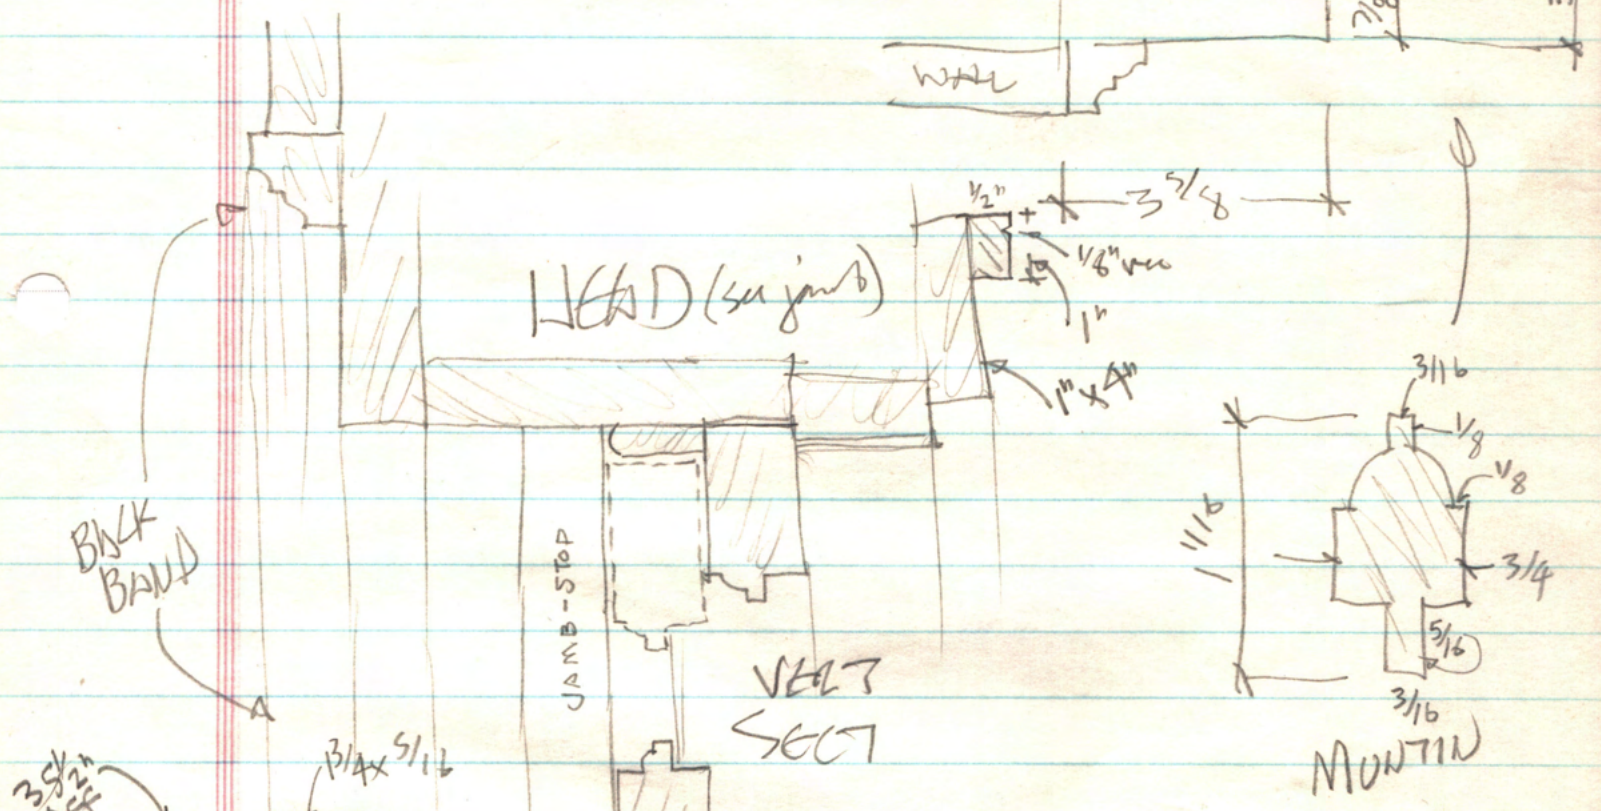 7/8
WALL
1/2"
3 5/8
1/8" rec
HEAD (see jamb)
1"
1" x 4"
3/16
1/8
1/8
1 1/16
3/4
5/16
3/16
MUNTIN
BACK
BAND
JAMB-STOP
VERT
SECT
1 3/4 x 5/16
3 5 1/2"